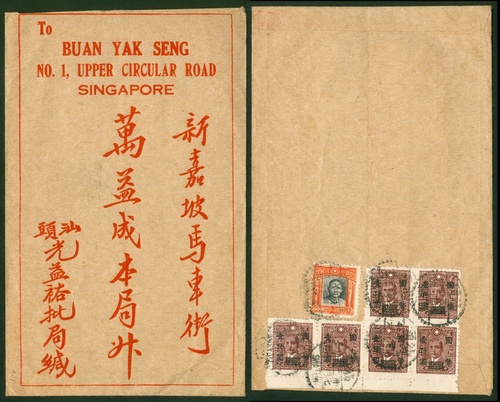 To
BUAN YAK SENG
NO. 1, UPPER CIRCULAR ROAD
SINGAPORE
新嘉坡馬車街
萬益成本局升
汕頭光益裕批局緘